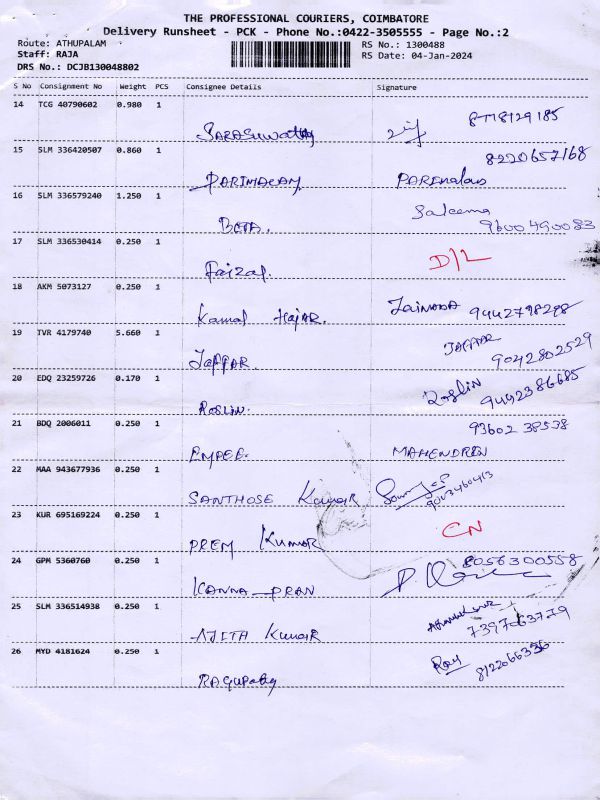 THE PROFESSIONAL COURIERS, COIMBATORE
Delivery Runsheet - PCK - Phone No.:0422-3505555 - Page No.:2
Route: ATHUPALAM
Staff: RAJA
DRS No.: DCJB130048802
RS No.: 1300488
RS Date: 04-Jan-2024
S No Consignment No Weight PCS Consignee Details Signature
14 TCG 40790602 0.980 1
Saraswathy
15 SLM 336420507 0.860 1 8220657168
PARIMALAM
16 SLM 336579240 1.250 1 Saleema
BETA. 9600490083
17 SLM 336530414 0.250 1 D/L
Faizal.
18 AKM 5073127 0.250 1
Kamal Hajar. 9442798298
19 TVR 4179740 5.660 1 JAFFAR
JAFFAR. 9042802529
20 EDQ 23259726 0.170 1 Roslin
ROSLIN. 9442386685
21 BDQ 2006011 0.250 1 93602 38538
EMPEE. MAHENDREN
22 MAA 943677936 0.250 1
SANTHOSE Kumar 9003460413
23 KUR 695169224 0.250 1 CN
PREM KUMAR
24 GPM 5360760 0.250 1 8056300558
KANNA-PRAN
25 SLM 336514938 0.250 1
AJITH Kumar 7397063779
26 MYD 4181624 0.250 1 Ray
RAGUPathy 8122066336